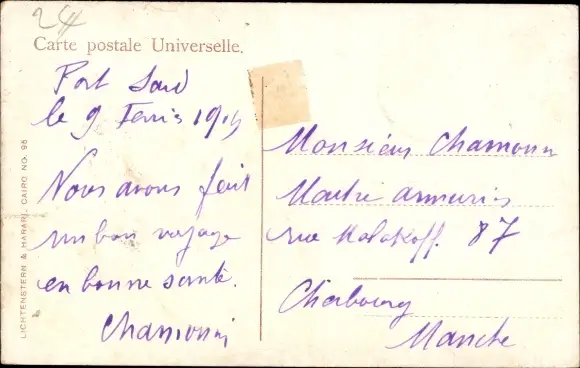 24
Carte postale Universelle.
Port Said
le 9 Fevris 1915
Nous avons fait
un bon voyage
en bonne santé.
Chamonin
Monsieur Chamonin
Maitre armuris
rue Malakoff. 87
Cherbourg
Manche
LICHTENSTERN & HARARI, CAIRO NO. 96